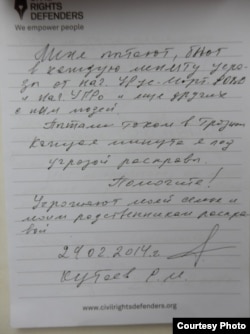 RIGHTS
DEFENDERS
We empower people
Меня пытают, бьют
в каждую минуту угро-
зы от нач Урус-Март. РОВД
и нач УПРо и еще других
с ним людей.
Пытали током в Грозном
каждая минута я под
угрозой расправы
Помогите!
Угрожают моей семье и
моим родственникам распра
вой
24.02.2014г.
Кутаев Р.М
www.civilrightsdefenders.org
Courtesy Photo